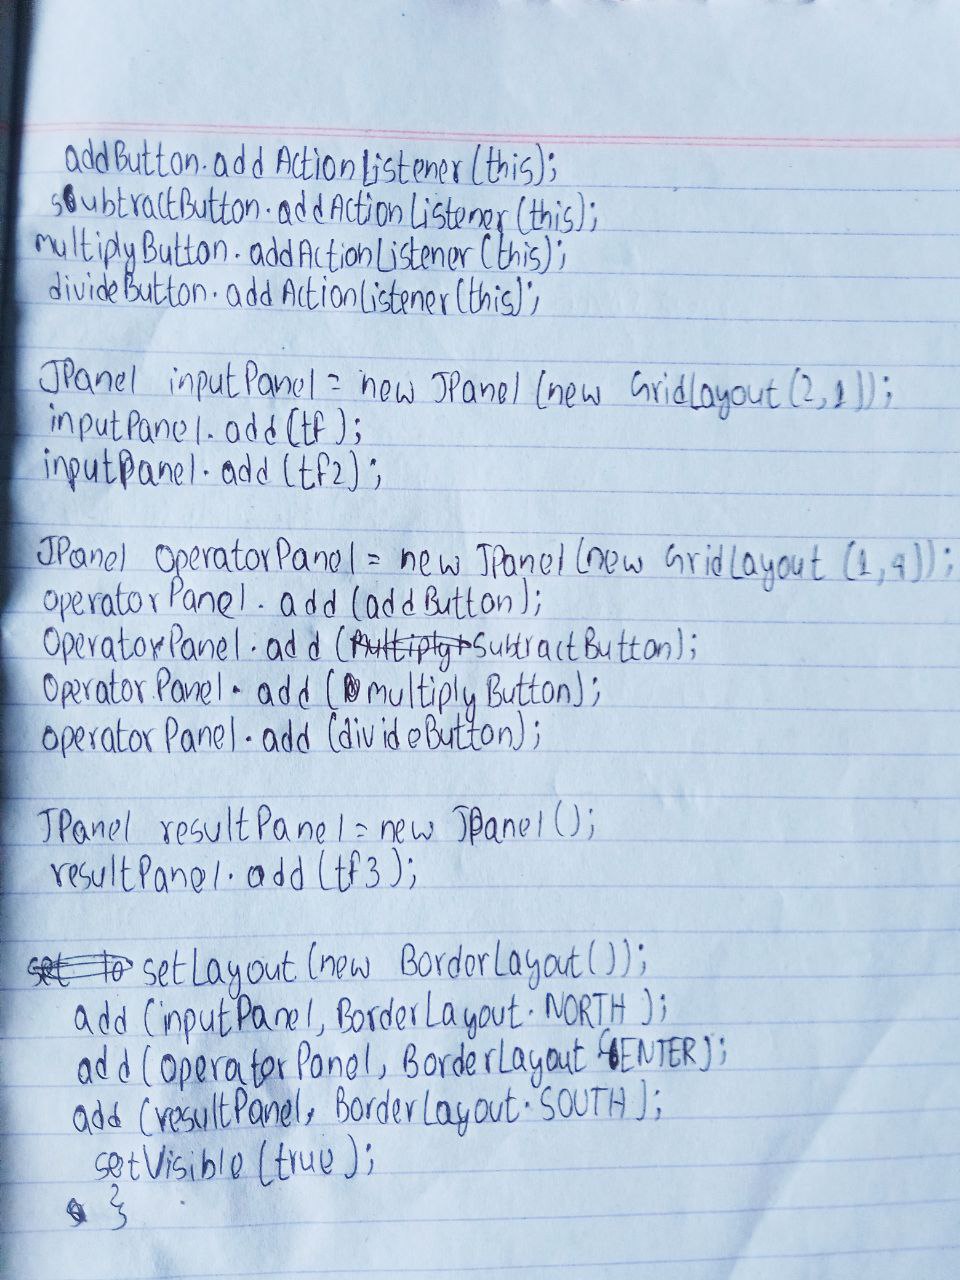 addButton.addActionListener(this);
subtractButton.addActionListener(this);
multiplyButton.addActionListener(this);
divideButton.addActionListener(this);
JPanel inputPanel = new JPanel (new GridLayout(2,1));
inputPanel.add(tf);
inputPanel.add(tf2);
JPanel operatorPanel = new JPanel(new GridLayout (1,4));
operatorPanel.add(addButton);
OperatorPanel.add(SubtractButton);
OperatorPanel.add(multiplyButton);
operatorPanel.add(divideButton);
JPanel resultPanel = new JPanel();
resultPanel.add(tf3);
setLayout(new BorderLayout());
add(inputPanel, BorderLayout.NORTH);
add(operatorPanel, BorderLayout CENTER);
add(resultPanel, BorderLayout.SOUTH);
setVisible(true);
}